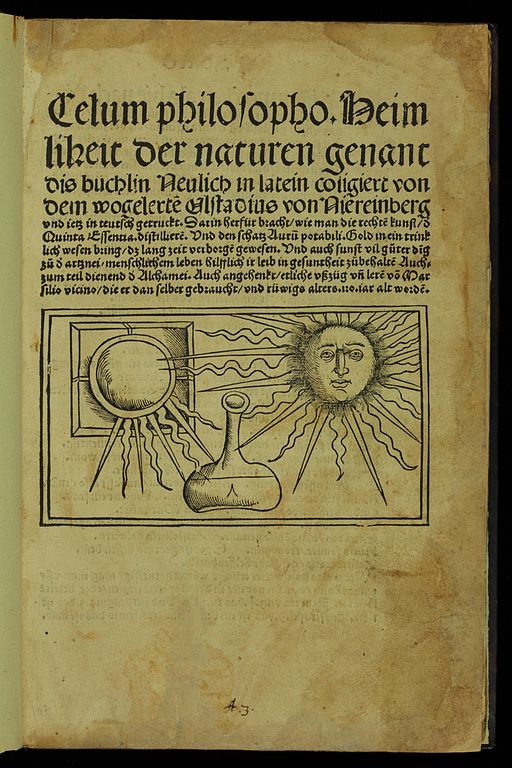 Celum philosopho. Heim
likeit der naturen genant
dis buchlin Neulich in latein colligiert von
dem wogelertē Elstadius von Niereinberg
vnd ietz in teutsch getruckt. Darin herfür bracht / wie man die rechte kunst / d
Quinta Essentia distillierē. Vnd den schatz Aurū potabili. Gold in ein trink
lich wesen bring / dz lang zeit verborgē gewesen. Vnd auch sunst vil gůter dīg
zů d artznei. menschlichem leben hilflich ir leib in gesuntheit zůbehaltē Auch
zum teil dienend d Alchamei. Auch angehenkt / etliche vßzüg vñ lere võ Mar
silio vicino / die er dan selber gebraucht / vnd rüwigs alters .110. iar alt wordē.
A.3.